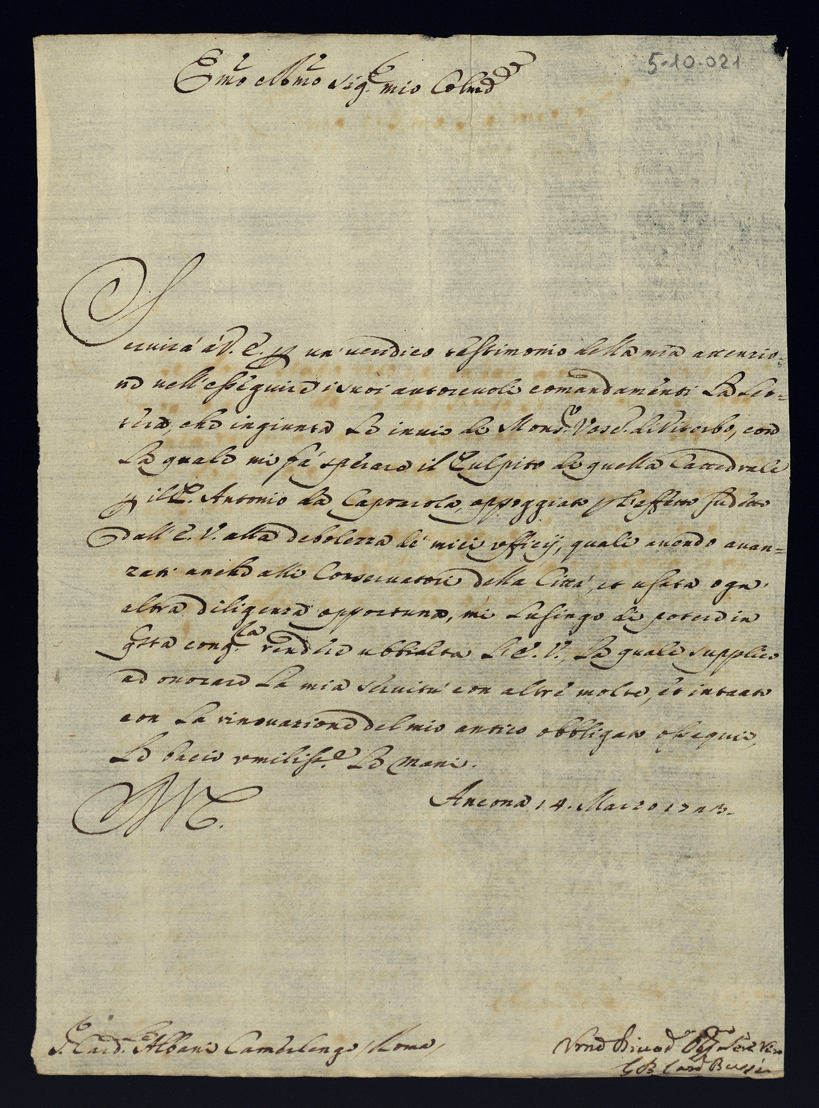 5-10-021
Emo e Rmo Sig. mio Colmo
Servirà à V. E. p un' veridico testimonio della mia attenzio=
ne nell' esseguire i suoi autorevoli comandamenti La Let=
tera, che ingiunta Le invio di Mons. Vesc. di Viterbo, con
La quale mi fà sperare il Pulpito di quella Cattedrale
p il P. Antonio da Capracola, appoggiato p l'effetto sudetto
dall' E. V. alla debolezza de' miei officij, quali avendo avan=
zati anche alli Conservatori della Città, et usata ogn'
altra diligenza opportuna, mi Lusingo di poterne in
qsta cong.ra render ubbidita L' E. V., La quale supplico
ad onorare La mia servitù con altre molte, et intanto
con La rinovazione del mio antico obbligato ossequio,
Le bacio umiliss.e Le mani.
Ancona 14. Marzo
S. Card. Albani Camerlengo / Roma /
G B Card Bussi